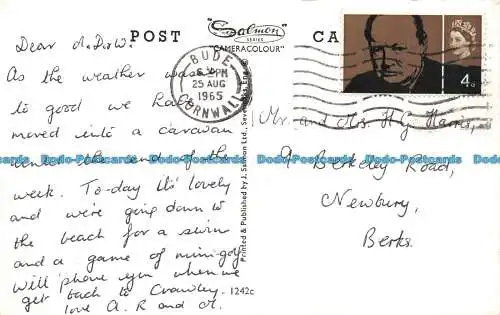 POST
"Salmon
SERIES
"CAMERACOLOUR"
CA
BUDE
PM
25 AUG
1965
CORNWALL
4D
Dear M.D&W.
As the weather was
to good we have
moved into a caravan
until the end of the
week. To-day it's lovely
and we're going down to
the beach for a swim
and a game of mini-golf
will phone you when we
get back to Crawley.
love A. R and M.
Printed & Published by J. Salmon Ltd., Sevenoaks, Eng. ©
1242c
Mr. and Mrs. H G Harris,
9 Berkeley Road,
Newbury,
Berks.
Dodo-Postcards Dodo-Postcards Dodo-Postcards Dodo-Postcards